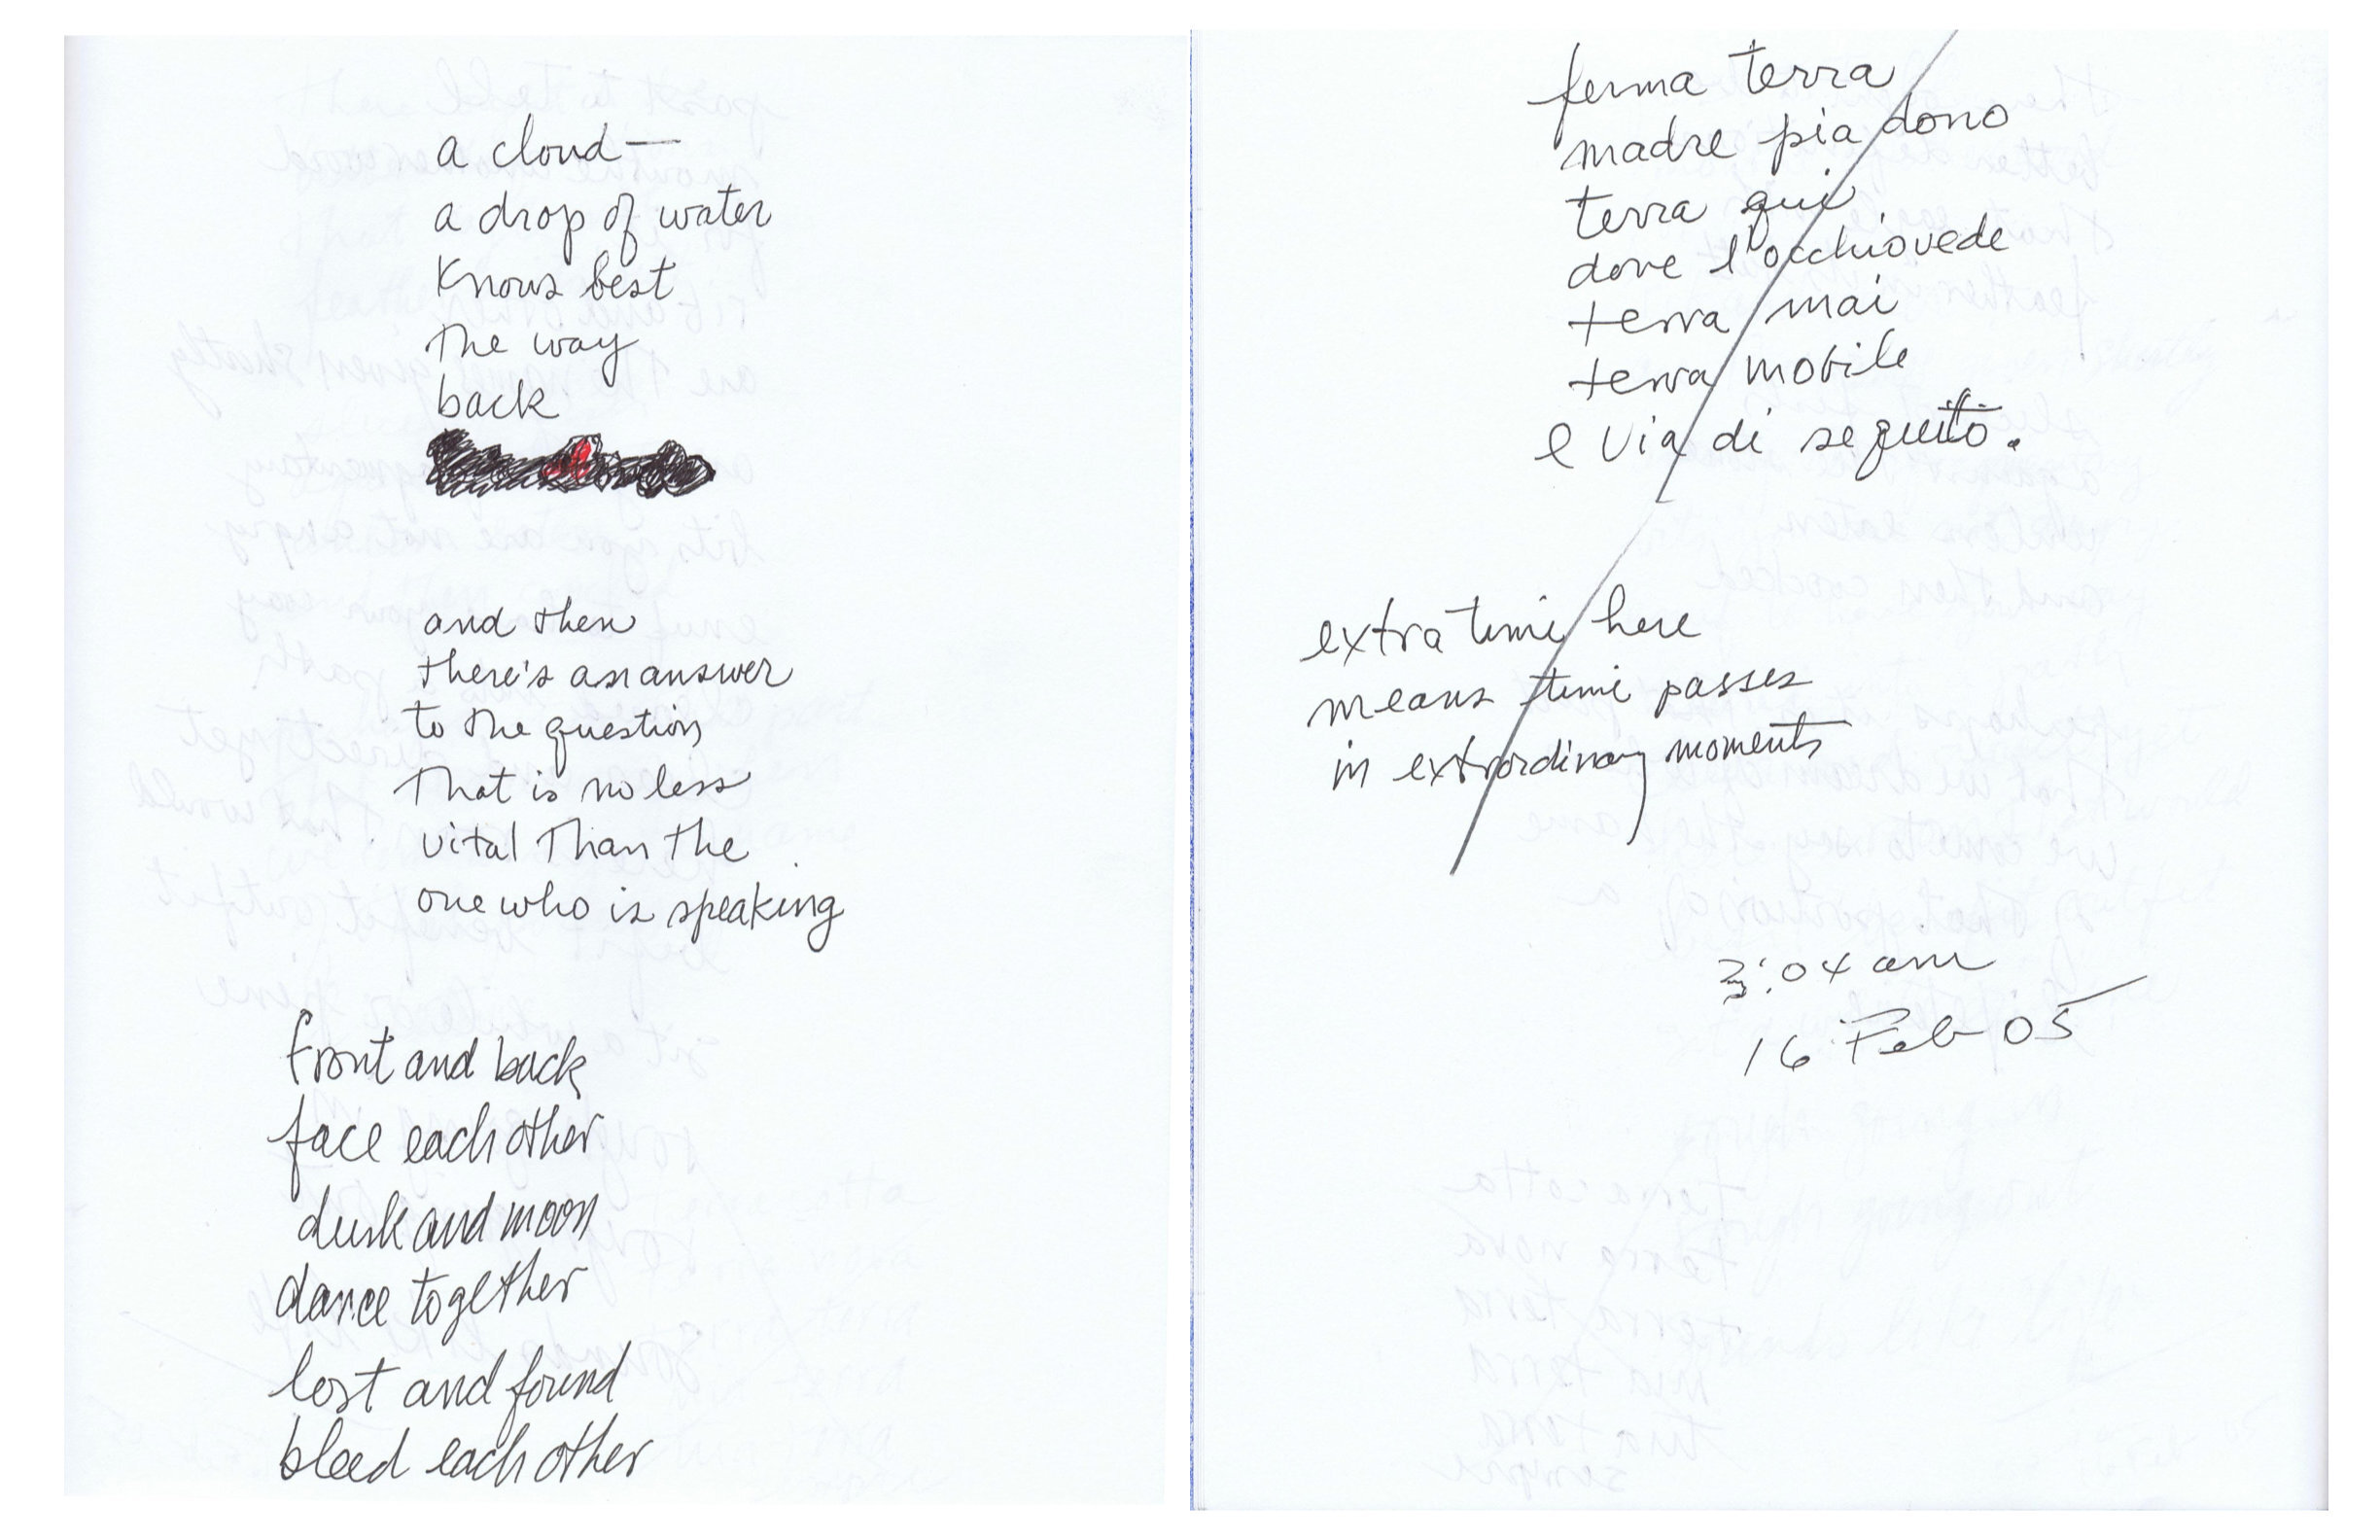 a cloud—
a drop of water
knows best
the way
back
and then
there's an answer
to the question
that is no less
vital than the
one who is speaking
front and back
face each other
dusk and moon
dance together
lost and found
bleed each other
ferma terra
madre pia dono
terra qui
dove l'occhiovede
terra mai
terra mobile
e via di seguito.
extra time here
means time passes
in extrordinary moments
3:04 am
16 Feb 05